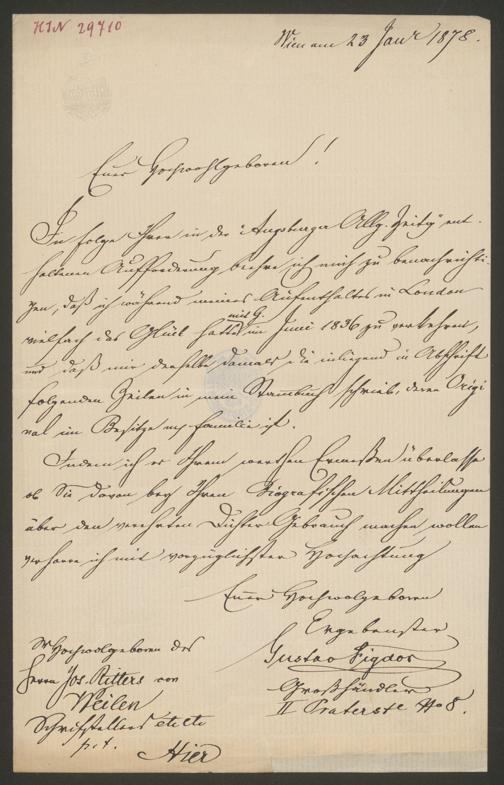 HIN 29710
Wien am 23 Janr 1878.
Euer Hochwohlgeboren!
In Folge Ihrer in der "Augsburger Allg. Zeitg" ent-
haltenen Aufforderung beehre ich mich zu benachrichti-
gen, daß ich während meines Aufenthaltes in London
mit G.
vielfach das Glück hatte im Juni 1836 zu verkehren,
und daß mir derselbe damals die inliegend in Abschrift
folgenden Zeilen in mein Stammbuch schrieb, deren Origi
nal im Besitze my Familie ist.
Indem ich es Ihrem werthen Ermessen überlasse
ob Sie davon bey Ihren Biografischen Mittheilungen
über den verehrten Dichter Gebrauch machen wollen
verharre ich mit vorzüglichster Hochachtung
Euer Hochwolgeboren
Ergebenster
Gustav Figdor
Großhändler
II Praterstr No 8.
Sr Hochwolgeboren des
Herrn Jos. Ritters von
Weilen
Schriftstellers etc etc
p. t.
Hier